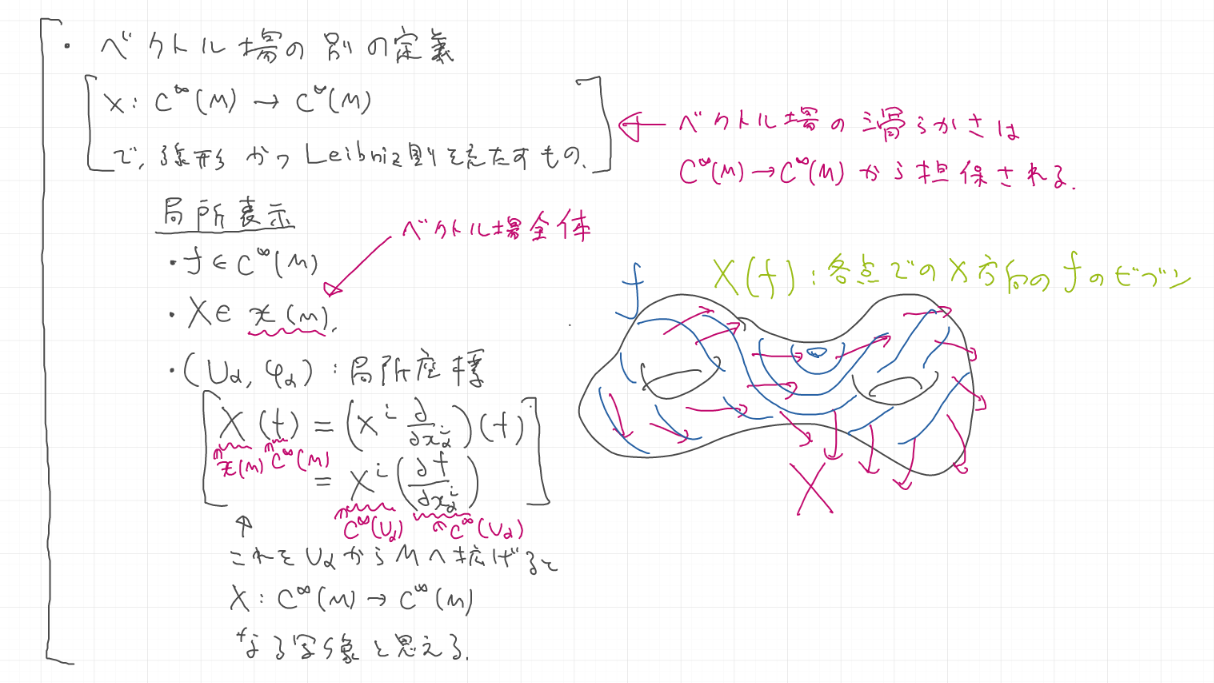 ・ベクトル場の別の定義
X : C^∞(M) → C^∞(M)
で, 線形かつLeibniz則をみたすもの.
← ベクトル場の滑らかさは
C^∞(M)→C^∞(M)から担保される.
局所表示
・f ∈ C^∞(M)
ベクトル場全体
・X ∈ 𝔛(M).
・(Uα, φα) : 局所座標
X(f) = (X^i ∂/∂x^i_α)(f)
𝔛(M) C^∞(M)
= X^i (∂f/∂x^i_α)
C^∞(Uα) C^∞(Uα)
↑
これをUαからMへ拡げると
X : C^∞(M) → C^∞(M)
なる写像と思える.
X(f) : 各点でのX方向のfのビブン
f
X